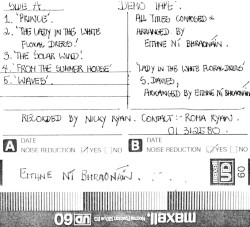 SIDE A
DEMO TAPE.
1. 'PRINCE'.
2. 'THE LADY IN THE WHITE
FLORAL DRESS!'
3. 'THE SOLAR WIND'.
4. 'FROM THE SUMMER HOUSE'
5. 'WAVES'.
ALL TITLES COMPOSED &
ARRANGED BY
EITHNE NÍ BHRAONÁIN.
'LADY IN THE WHITE FLORAL DRESS'
S. DAVIES,
ARRANGED BY EITHNE NÍ BHRAONÁIN
RECORDED BY NICKY RYAN. CONTACT:- ROMA RYAN.
01 312580.
A DATE
NOISE REDUCTION YES NO
B DATE
NOISE REDUCTION YES NO
EITHNE NÍ BHRAONÁIN.
UD 60
maxell. UD 60